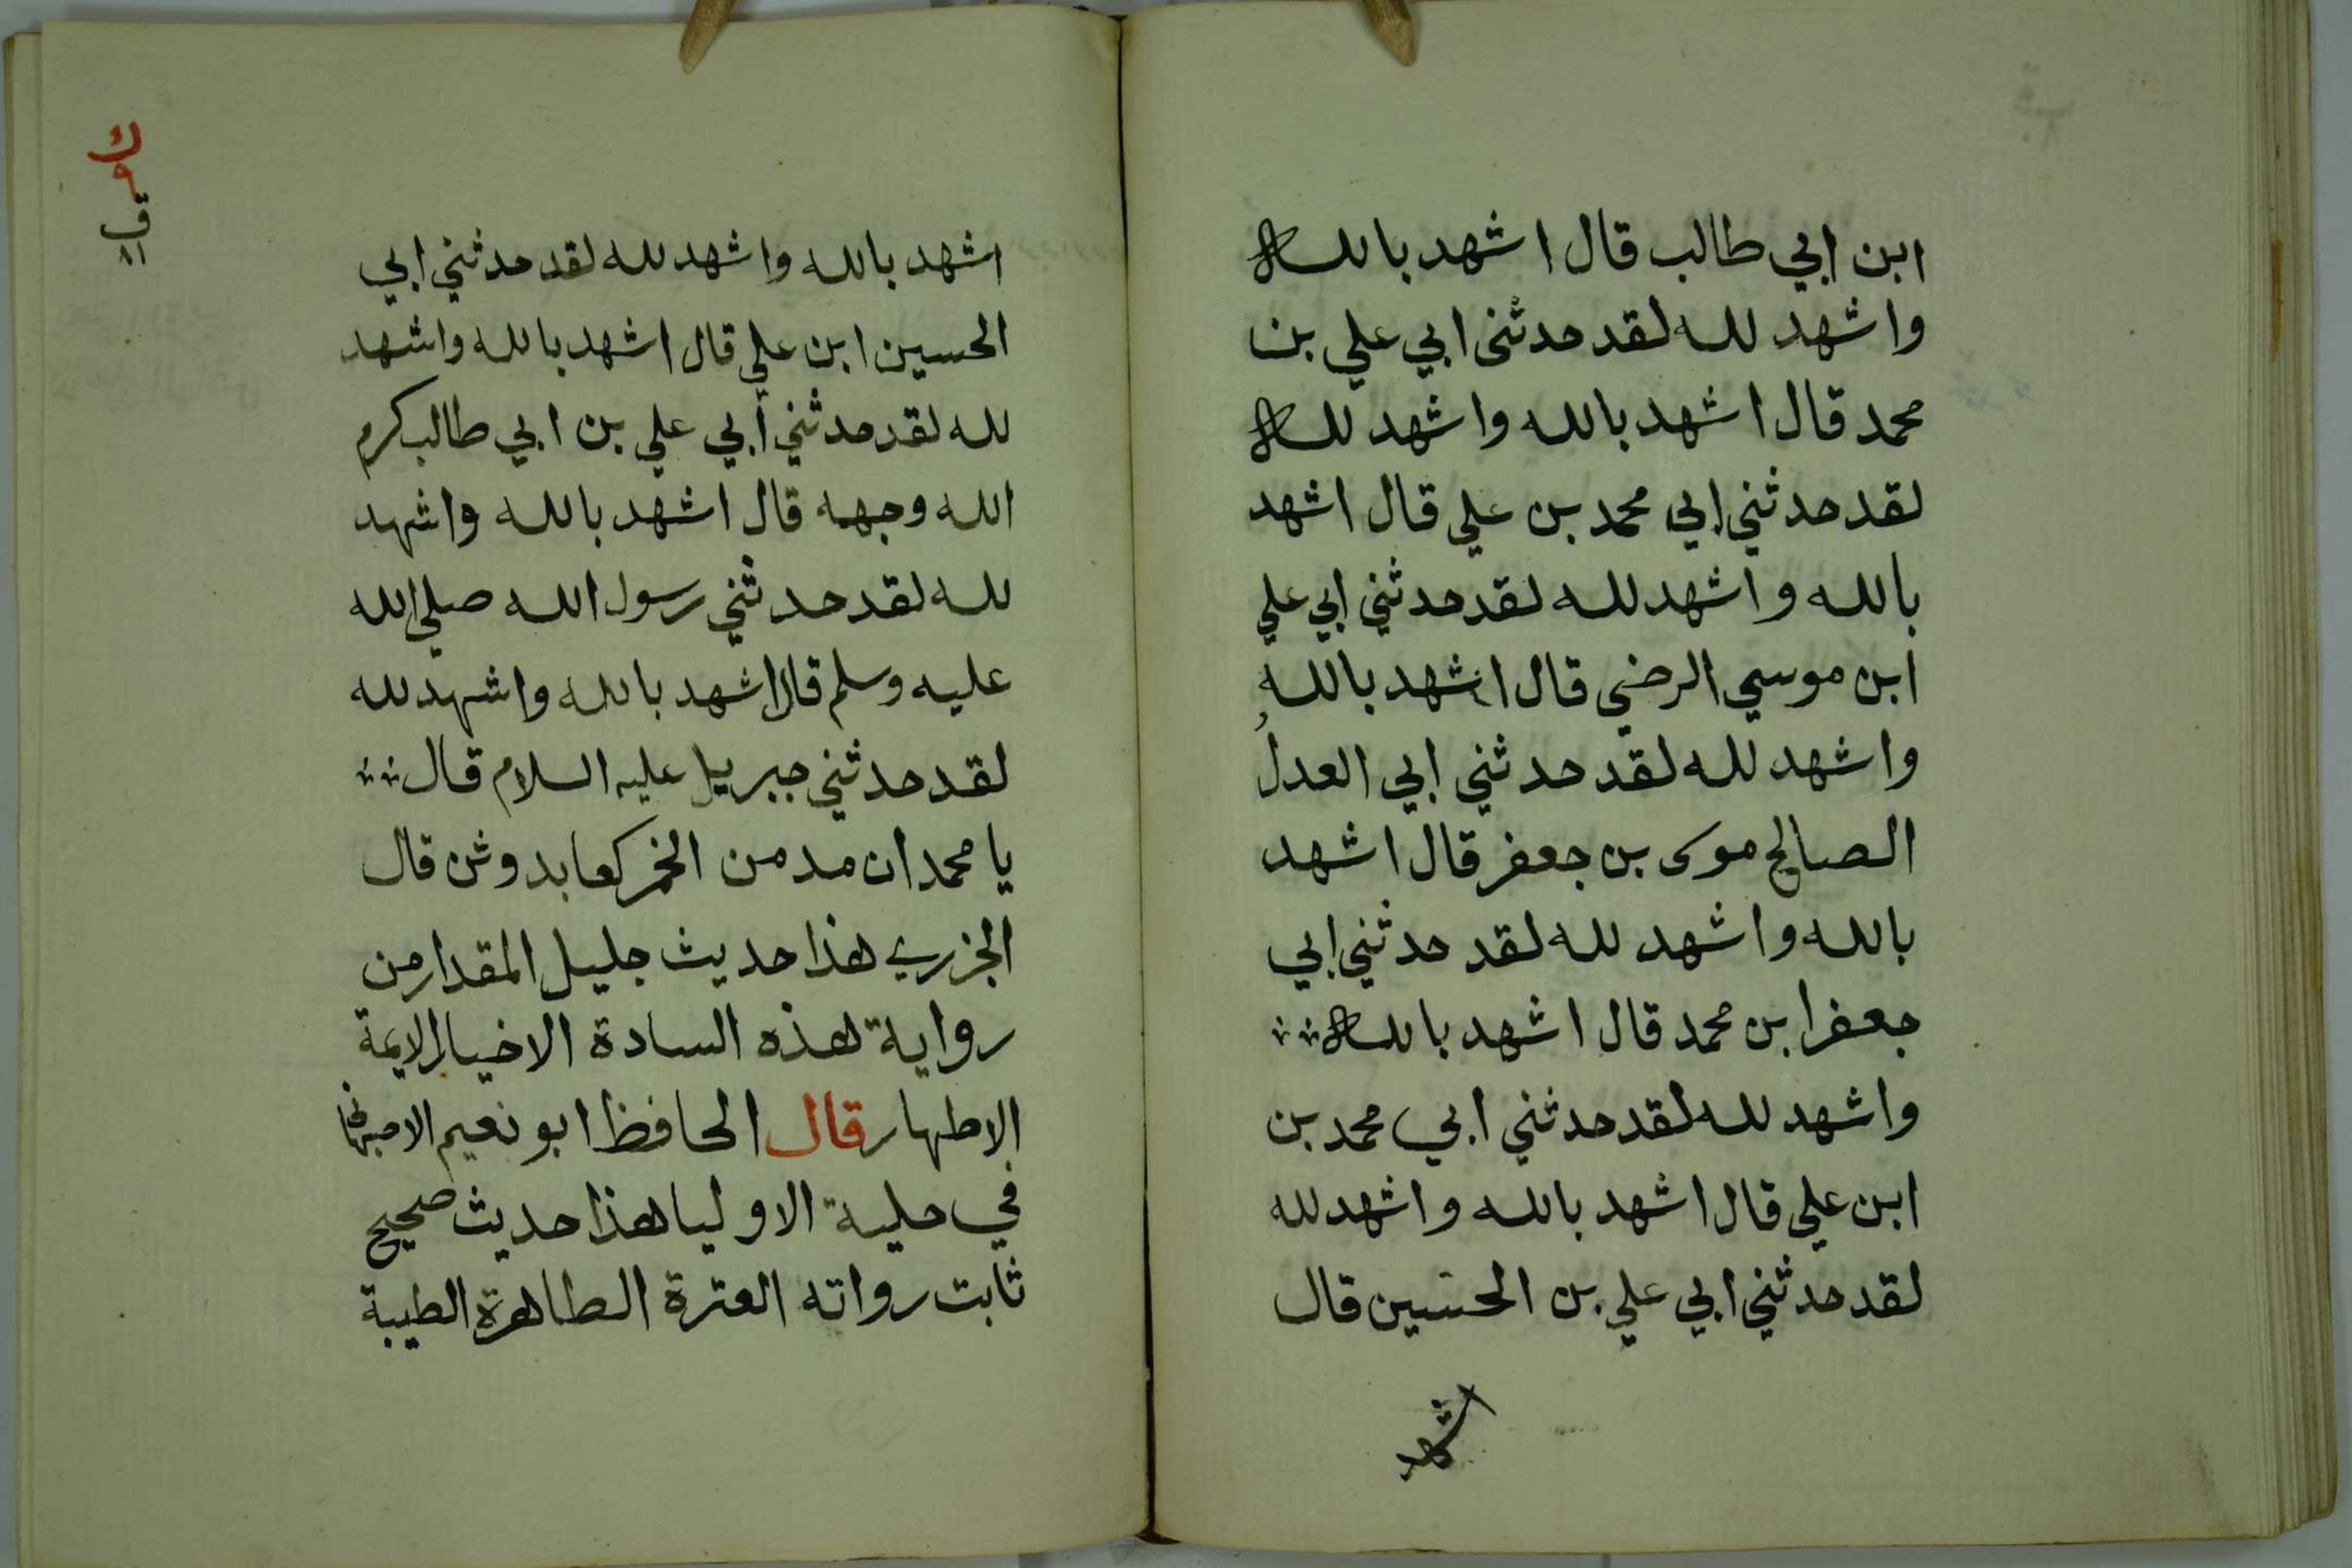 ابن ابي طالب قال اشهد بالله
واشهد لله لقد حدثنى ابي علي بن
محمد قال اشهد بالله واشهد لله
لقد حدثني ابي محمد بن علي قال اشهد
بالله واشهد لله لقد حدثني ابي علي
ابن موسي الرضي قال اشهد بالله
واشهد لله لقد حدثني ابي العدل
الصالح موسى بن جعفر قال اشهد
بالله واشهد لله لقد حدثني ابي
جعفر ابن محمد قال اشهد بالله
واشهد لله لقد حدثني ابي محمد بن
ابن علي قال اشهد بالله واشهد لله
لقد حدثني ابي علي بن الحسين قال
اشهد
اشهد بالله واشهد لله لقد حدثني ابي
الحسين ابن علي قال اشهد بالله واشهد
لله لقد حدثني أبي علي بن ابي طالب كرم
الله وجهه قال اشهد بالله واشهد
لله لقد حدثني رسول الله صلي الله
عليه وسلم قال اشهد بالله واشهد لله
لقد حدثني جبريل عليه السلام قال
يا محمد ان مدمن الخمر كعابد وثن قال
الجزري هذا حديث جليل المقدار من
رواية هذه السادة الاخيار الايمة
الاطهار قال الحافظ ابو نعيم الاصبهانى
في حلية الاوليا هذا حديث صحيح
ثابت رواته العترة الطاهرة الطيبة